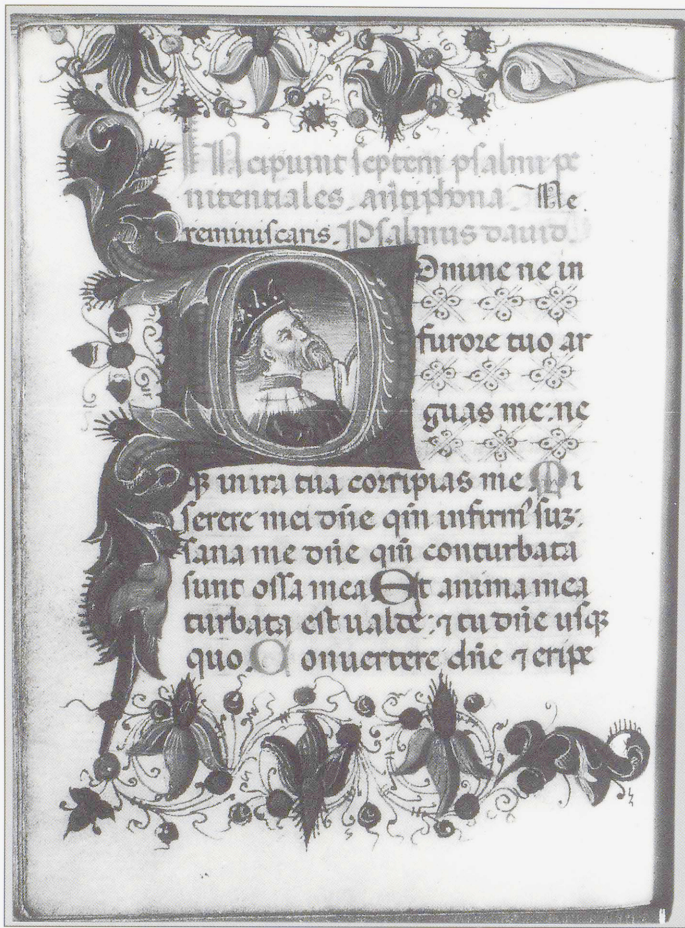 INcipiunt septem psalmi pe
nitentiales. añtiphona. Ne
reminiscaris. Psalmus dauid.
Domine ne in
furore tuo ar
guas me: ne
qꝫ in ira tua corripias me Mi
serere mei dñe qm̃ infirmꝰ suꝫ:
sana me dñe qm̃ conturbata
sunt ossa mea Et anima mea
turbata est ualde: ⁊ tu dñe usqꝫ
quo. Conuertere dñe ⁊ eripe